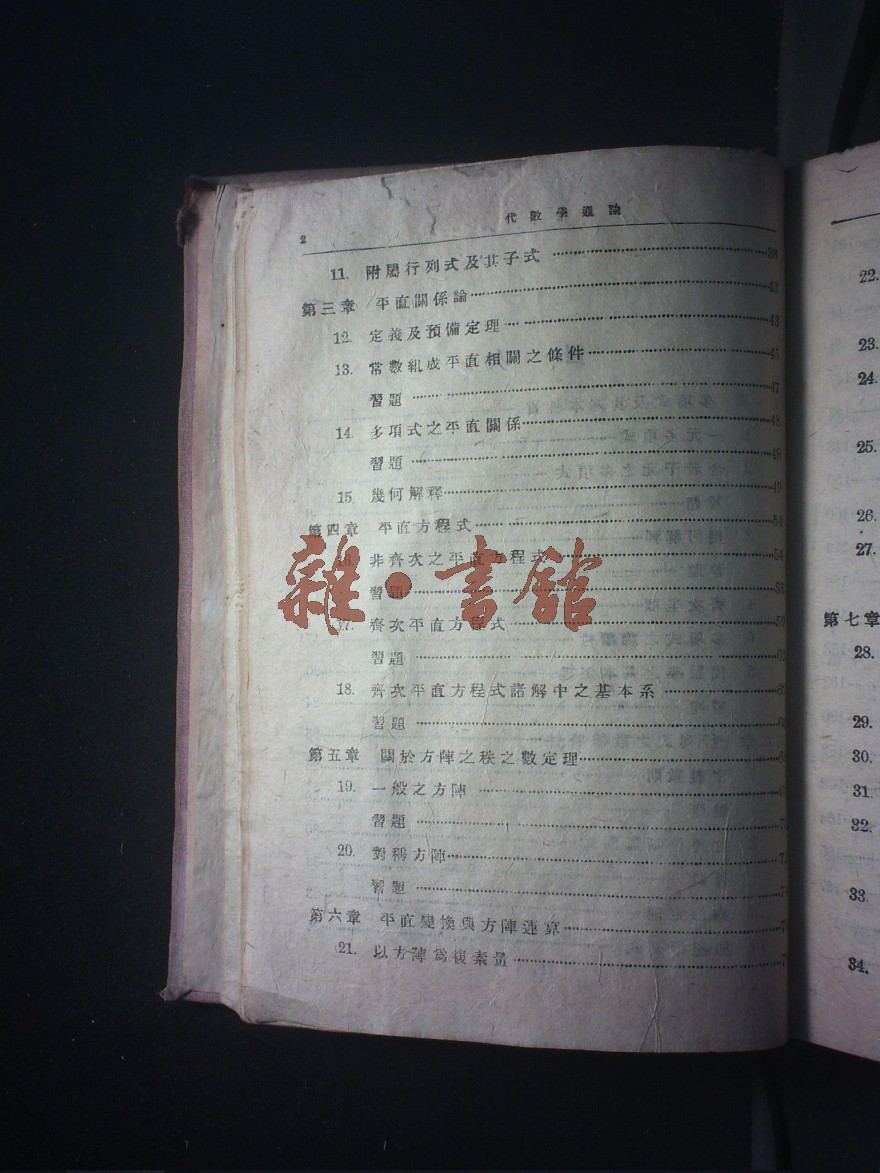 2 代數學通論
11. 附屬行列式及其子式 38
第三章 平直關係論 43
12. 定義及預備定理 43
13. 常數組成平直相關之條件 45
習題 47
14. 多項式之平直關係 48
習題 48
15. 幾何解釋 49
第四章 平直方程式 54
16. 非齊次之平直方程式 54
習題 58
17. 齊次平直方程式 59
習題
18. 齊次平直方程式諸解中之基本系
習題
第五章 關於方陣之秩之數定理
19. 一般之方陣
習題
20. 對稱方陣
習題
第六章 平直變換與方陣運算
21. 以方陣爲複素量
雜·書舘
22.
23.
24.
25.
26.
27.
第七章
28.
29.
30.
31.
32.
33.
34.